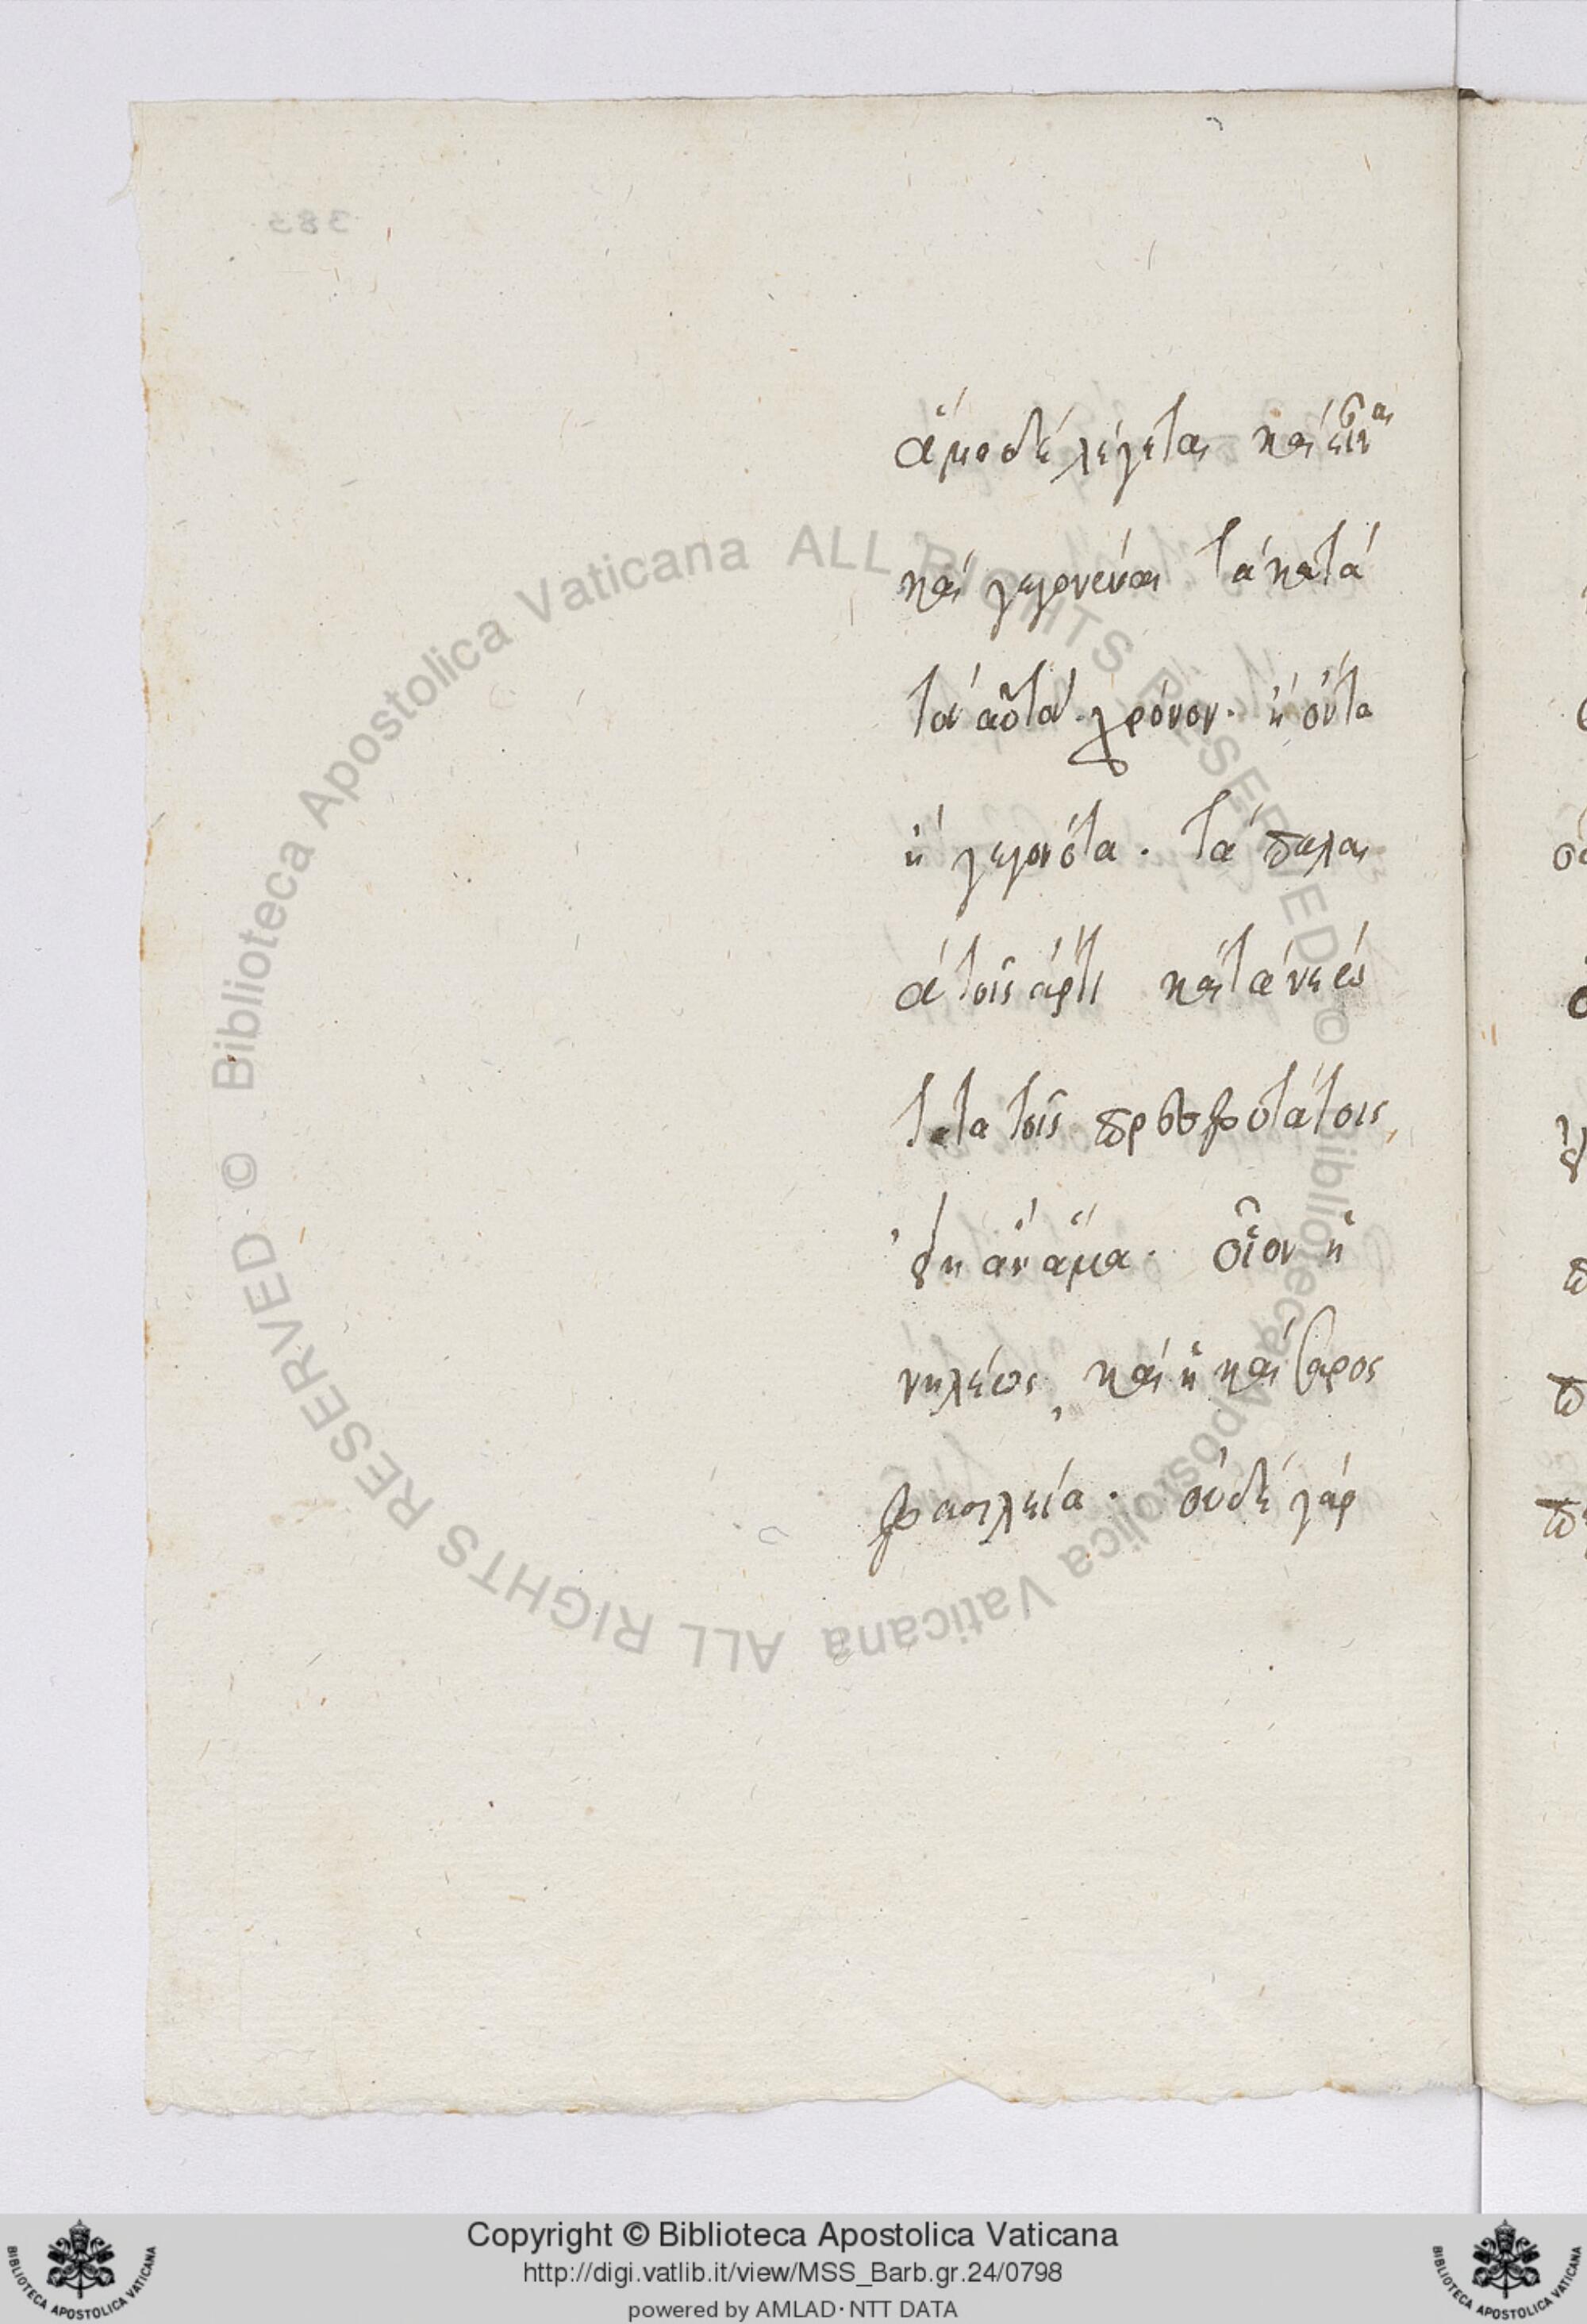 ἅμα δὲ λέγεται καὶ εἶναι
καὶ γεγονέναι τὰ κατὰ
τὰ αὐτὰ χρόνον· ἢ ὄντα
ἢ γεγονότα· τὰ παλαι
ὰ τοῖς ἄρτι καὶ τὰ νεώ
τατα τοῖς πρεσβυτάτοις,
οὐκ ἂν ἅμα· οἷον ἡ
νηλέως, καὶ ἡ καίσαρος
βασιλεία· οὐδὲ γὰρ
383
Biblioteca Apostolica Vaticana ALL RIGHTS RESERVED ©
Biblioteca Apostolica Vaticana ALL RIGHTS RESERVED ©
Copyright © Biblioteca Apostolica Vaticana
http://digi.vatlib.it/view/MSS_Barb.gr.24/0798
powered by AMLAD · NTT DATA
BIBLIOTECA APOSTOLICA VATICANA
BIBLIOTECA APOSTOLICA VATICANA